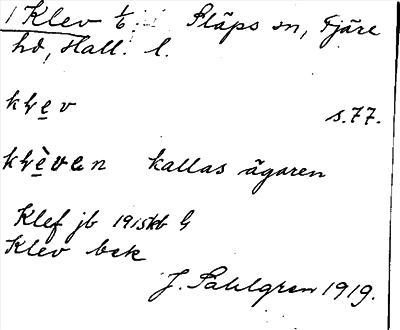 1 Klev 1/6 Släps sn, Fjäre
hd, Hall. l.
klev s.77.
klèven kallas ägaren
Klef jb 1915kb
Klev bek
J. Sahlgren 1919.